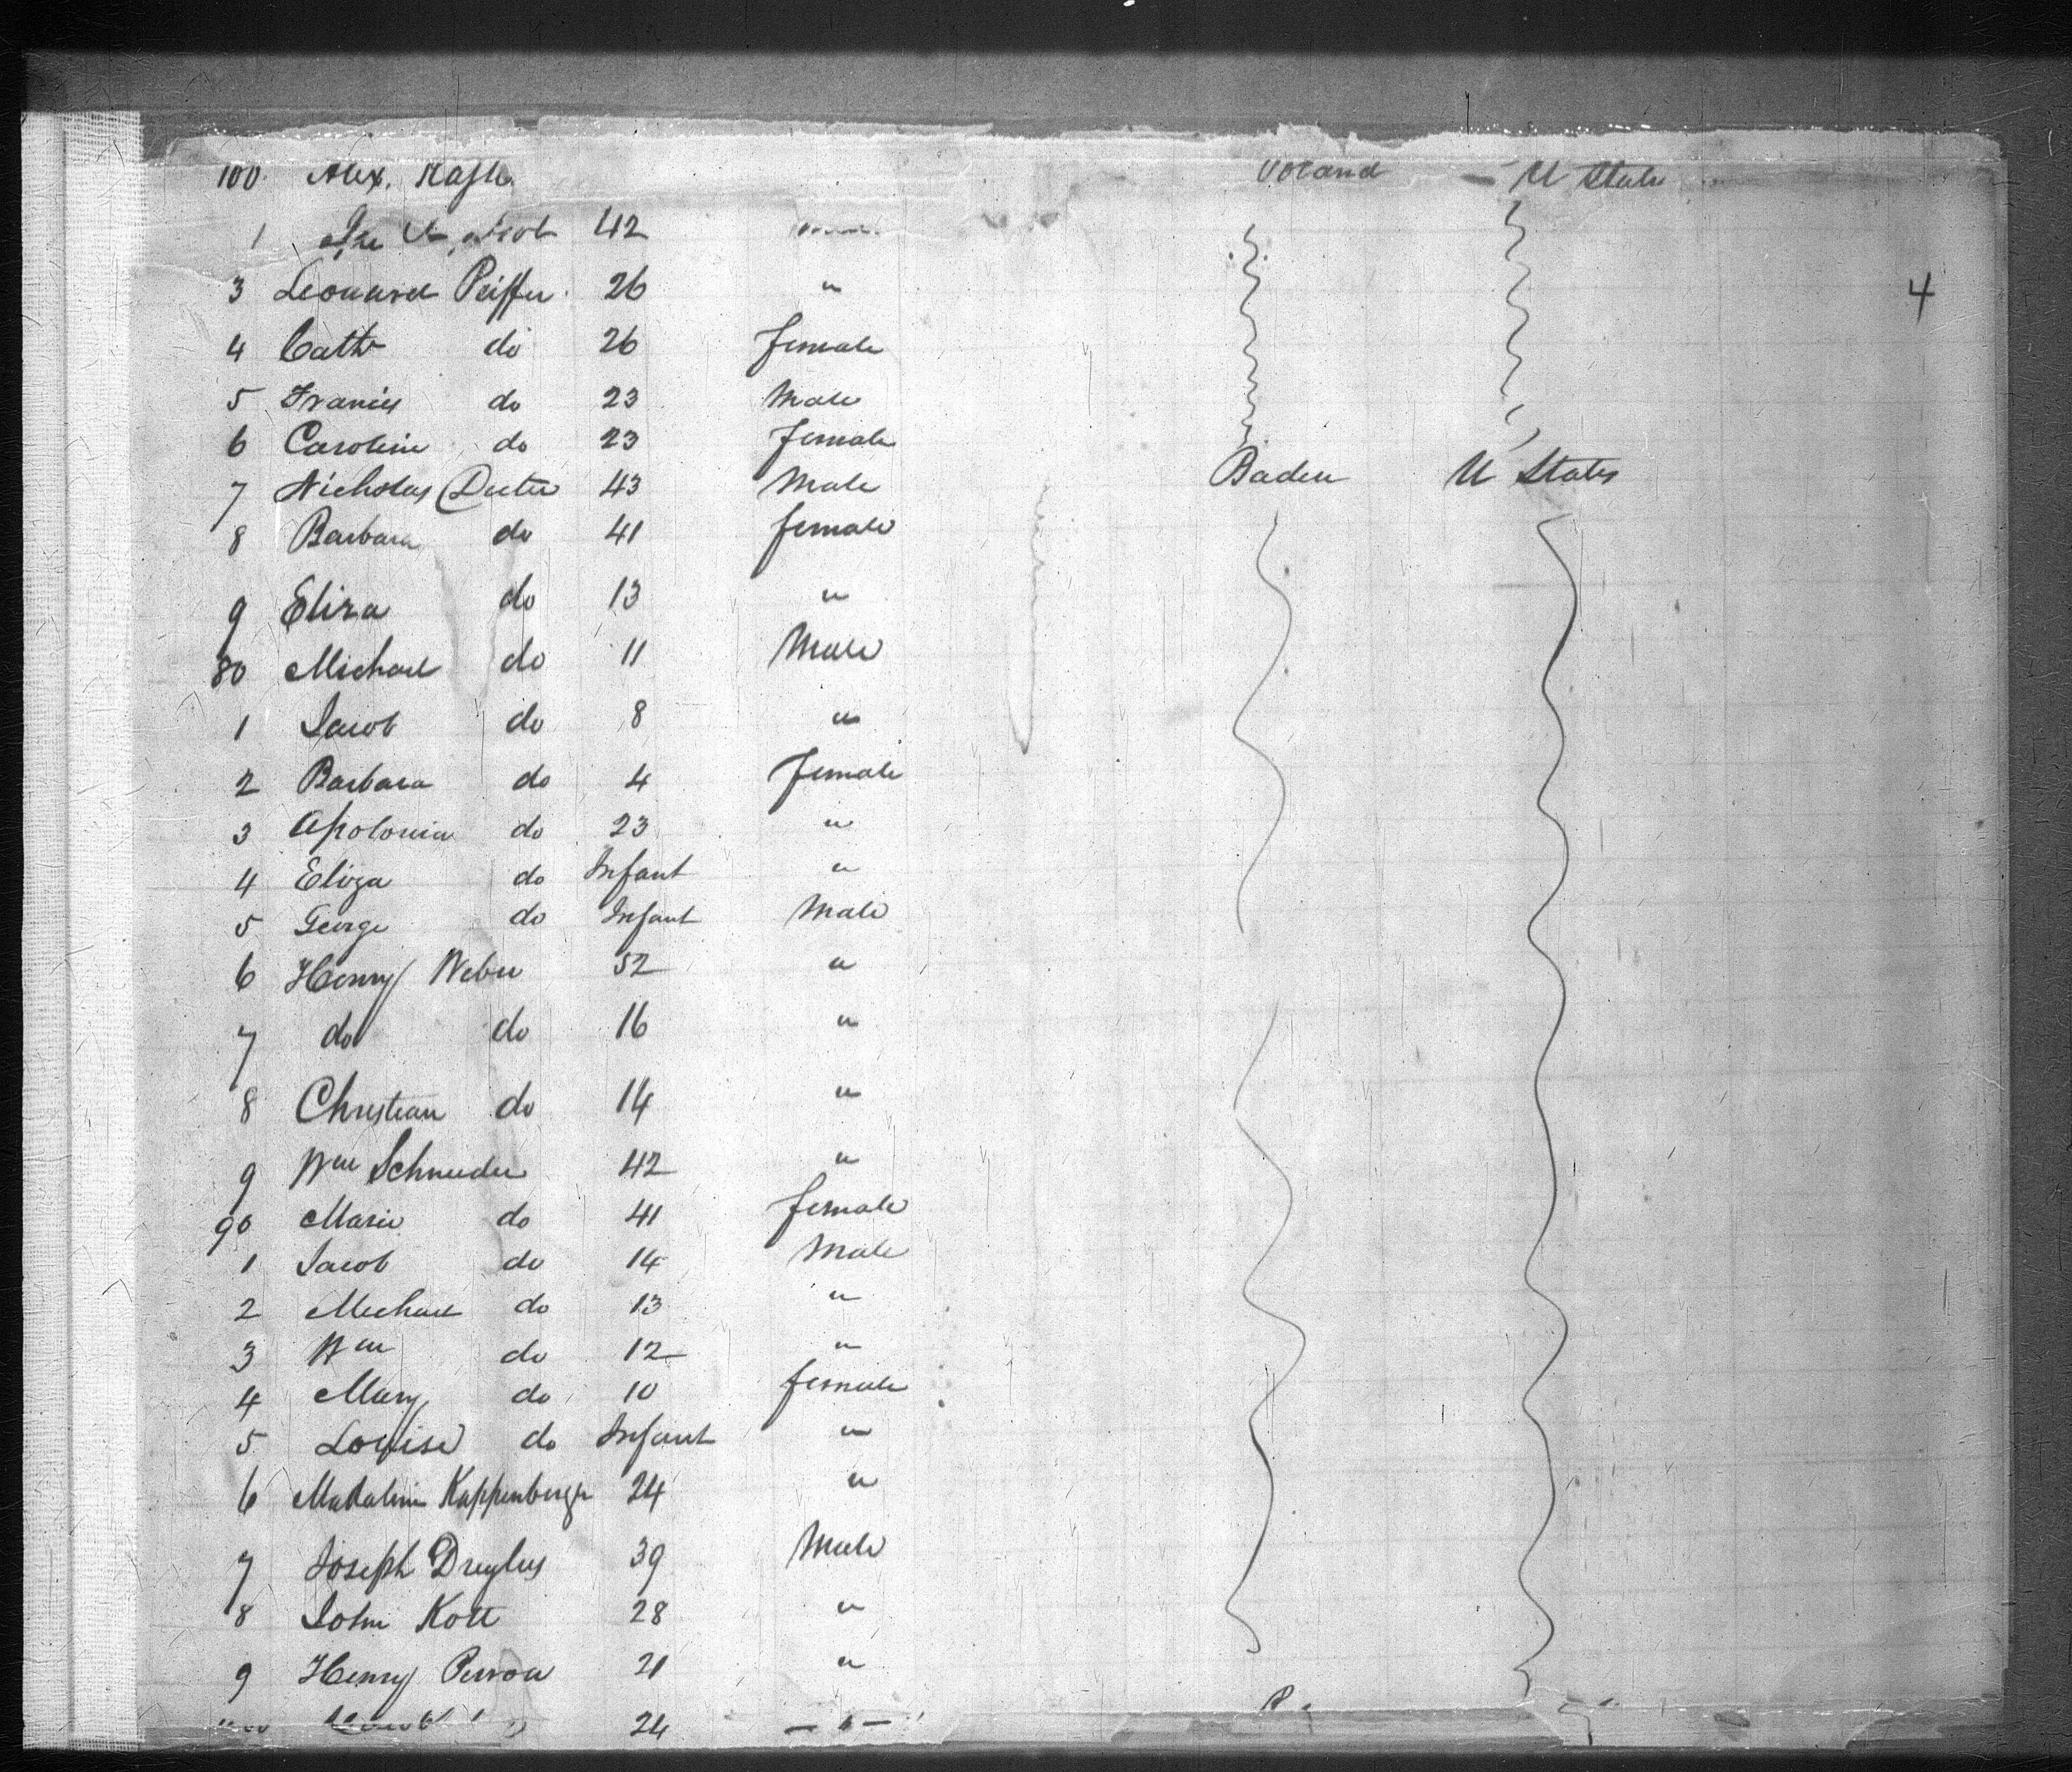 100 Alex. U States
1 42
4
3 Leonard Peiffer 26 "
4 Cath do 26 female
5 Francis do 23 Male
6 Caroline do 23 female
7 Nicholas Dieter 43 Male Baden U States
8 Barbara do 41 female
9 Eliza do 13 "
80 Michael do 11 Male
1 Jacob do 8 "
2 Barbara do 4 female
3 Apolonia do 23 "
4 Eliza do Infant "
5 George do Infant Male
6 Henry Weber 52 "
7 do do 16 "
8 Christian do 14 "
9 Wm Schneider 42 "
90 Marie do 41 female
1 Jacob do 14 Male
2 Michael do 13 "
3 Wm do 12 "
4 Mary do 10 female
5 Louise do Infant "
6 Madaline Kappenberger 24 "
7 Joseph Dreyfus 39 Male
8 John Kott 28 "
9 Henry Perron 21 "
24